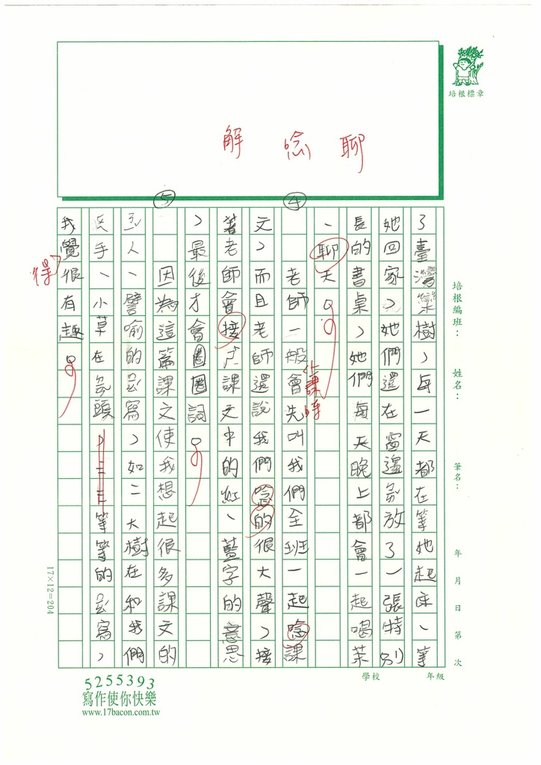 解 唸 聊
培根標章
了臺灣欒樹，每一天都在等她起床、等
她回家，她們還在窗邊放了一張特別
長的書桌，她們每天晚上都會一起喝茶
、聊天。
④
老師一般會先叫我們全班一起唸課
上課時
文，而且老師還說我們唸的很大聲，接
著老師會接課文中的紅、藍字的意思
，最後才會圈圈詞。
⑤
因為這篇課文使我想起很多課文的
人、譬喻的寫，如：大樹在和我們
手、小草在頭等等的寫，
我覺很有趣。
得
培根編班：
姓名：
筆名：
年 月 日 第 次
學校 年級
17×12=204
5255393
寫作使你快樂
www.17bacon.com.tw